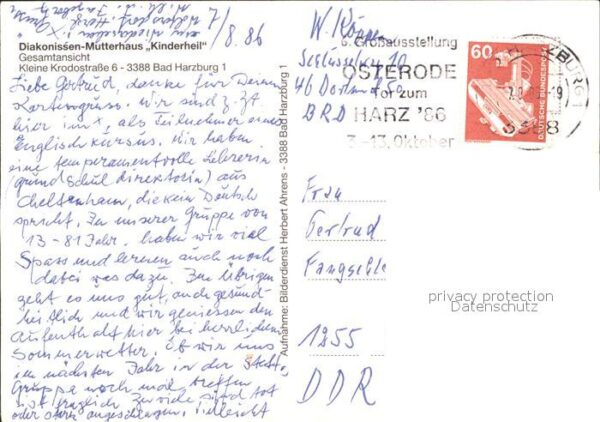 7/8.86
Diakonissen-Mutterhaus „Kinderheil"
Gesamtansicht
Kleine Krodostraße 6 - 3388 Bad Harzburg 1
Liebe Gertrud, danke für Deinen
Kartengruss. Wir sind z. Zt.
hier im x, als Teilnehmer eines
Englischkursus. Wir haben
eine temperamentvolle Lehrerin
(grundschuldirektorin) aus
Cheltenham, die kein Deutsch
spricht. In unserer Gruppe von
13-81 Jahr. haben wir viel
Spass und lernen auch noch
dabei was dazu. Im übrigen
geht es uns gut, auch gesund-
heitlich und wir geniessen den
Aufenthalt hier bei herrlichem
Sommerwetter. Ob wir uns
im nächsten Jahr in der
Gruppe noch mal treffen
ist fraglich. Zu viele sind tot
oder stark angeschlagen, vielleicht
Aufnahme: Bilderdienst Herbert Ahrens - 3388 Bad Harzburg 1
W.
46 Dortmund 50
BRD
6. Großausstellung
OSTERODE
Tor zum
HARZ '86
3.-13. Oktober
60
DEUTSCHE BUNDESPOST
HARZBURG 1
-19
3388
Frau
Gertrud
1255
DDR
privacy protection
Datenschutz